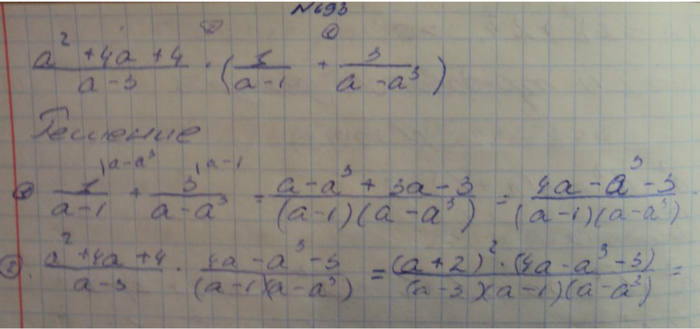 №693
② ①
(a² + 4a + 4)/(a - 3) · (1/(a - 1) + 3/(a - a³))
Решение
① 1^{\a - a³}/(a - 1) + 3^{\a - 1}/(a - a³) = (a - a³ + 3a - 3)/((a - 1)(a - a³)) = (4a - a³ - 3)/((a - 1)(a - a³))
②. (a² + 4a + 4)/(a - 3) · (4a - a³ - 3)/((a - 1)(a - a³)) = ((a + 2)² · (4a - a³ - 3))/((a - 3)(a - 1)(a - a³)) =